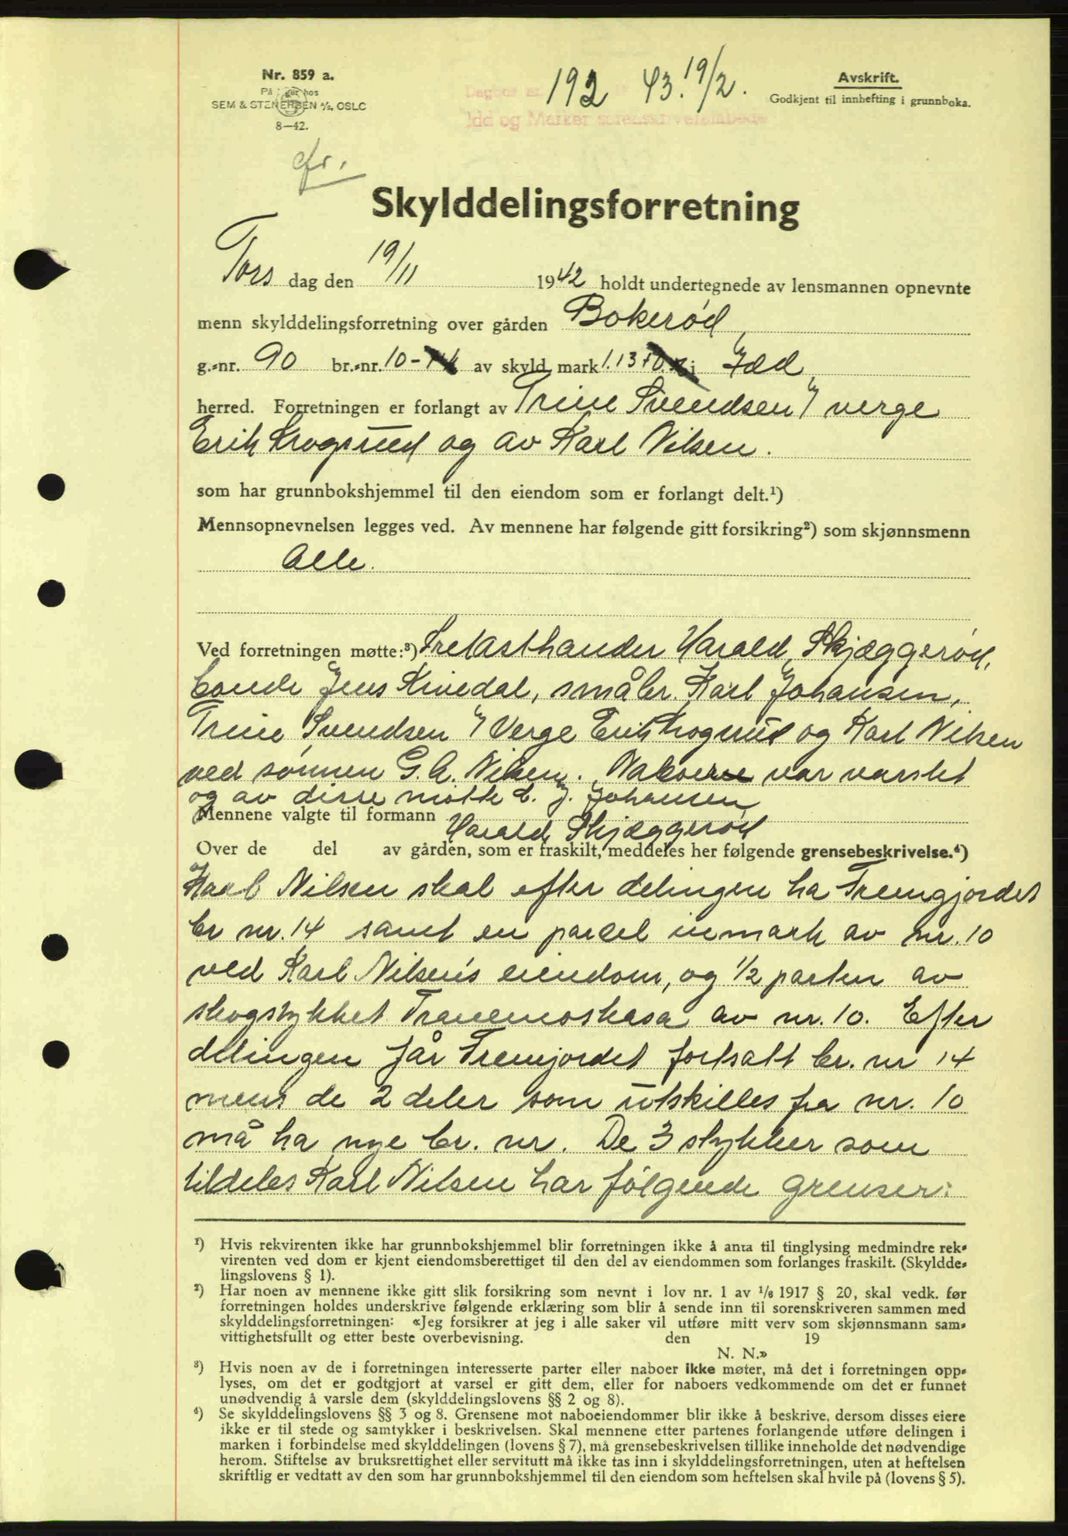 Nr. 859 a.
På lager hos
SEM & STENERSEN A/S, OSLO
8—42.
Dagbok nr. 192 43. 19/2.
Idd og Marker sorenskriverembede
Avskrift.
Godkjent til innhefting i grunnboka.
cfr.
Skylddelingsforretning
Tors dag den 19/11 1942 holdt undertegnede av lensmannen opnevnte
menn skylddelingsforretning over gården Bokerød,
g.-nr. 90 br.-nr. 10 - av skyld mark 1.13 i Idd
herred. Forretningen er forlangt av Trine Svendsen v/ verge
Erik Krogsrud og av Karl Nilsen.
som har grunnbokshjemmel til den eiendom som er forlangt delt.¹)
Mennsopnevnelsen legges ved. Av mennene har følgende gitt forsikring²) som skjønnsmenn
Alle.
Ved forretningen møtte:³) Trelasthandler Harald Skjæggerød,
bonde Jens Kivedal, småbr. Karl Johansen,
Trine Svendsen v/ Verge Erik Krogsrud og Karl Nilsen
ved sønnen G. A. Nilsen. Naboene var varslet
og av disse møtte L. J. Johansen
Mennene valgte til formann Harald Skjæggerød
Over de del av gården, som er fraskilt, meddeles her følgende grensebeskrivelse.⁴)
Karl Nilsen skal efter delingen ha Tremgjordet
br nr. 14 samt en parcel inmark av nr. 10
ved Karl Nilsen's eiendom, og 1/2 parten av
skogstykket Tranemoskasa av nr. 10. Efter
delingen får Tremjordet fortsatt br. nr 14
mens de 2 deler som utskilles fra nr. 10
må ha nye br. nr. De 3 stykker som
tildeles Karl Nilsen har følgende grenser:
¹) Hvis rekvirenten ikke har grunnbokshjemmel blir forretningen ikke å anta til tinglysing medmindre rek-
virenten ved dom er kjent eiendomsberettiget til den del av eiendommen som forlanges fraskilt. (Skyldde-
lingslovens § 1).
²) Har noen av mennene ikke gitt slik forsikring som nevnt i lov nr. 1 av 1/8 1917 § 20, skal vedk. før
forretningen holdes underskrive følgende erklæring som blir å sende inn til sorenskriveren sammen med
skylddelingsforretningen: «Jeg forsikrer at jeg i alle saker vil utføre mitt verv som skjønnsmann sam-
vittighetsfullt og etter beste overbevisning. den 19
N. N.»
³) Hvis noen av de i forretningen interesserte parter eller naboer ikke møter, må det i forretningen opp-
lyses, om det er godtgjort at varsel er gitt dem, eller for naboers vedkommende om det er funnet
unødvendig å varsle dem (skylddelingslovens §§ 2 og 8).
⁴) Se skylddelingslovens §§ 3 og 8. Grensene mot naboeiendommer blir ikke å beskrive, dersom disses eiere
ikke er til stede og samtykker i beskrivelsen. Skal mennene etter partenes forlangende utføre delingen i
marken i forbindelse med skylddelingen (lovens § 7), må grensebeskrivelsen tillike inneholde det nødvendige
herom. Stiftelse av bruksrettighet eller servitutt må ikke tas inn i skylddelingsforretningen, uten at heftelsen
skriftlig er vedtatt av den som har grunnbokshjemmel til den eiendom som heftelsen skal hvile på (lovens § 5).